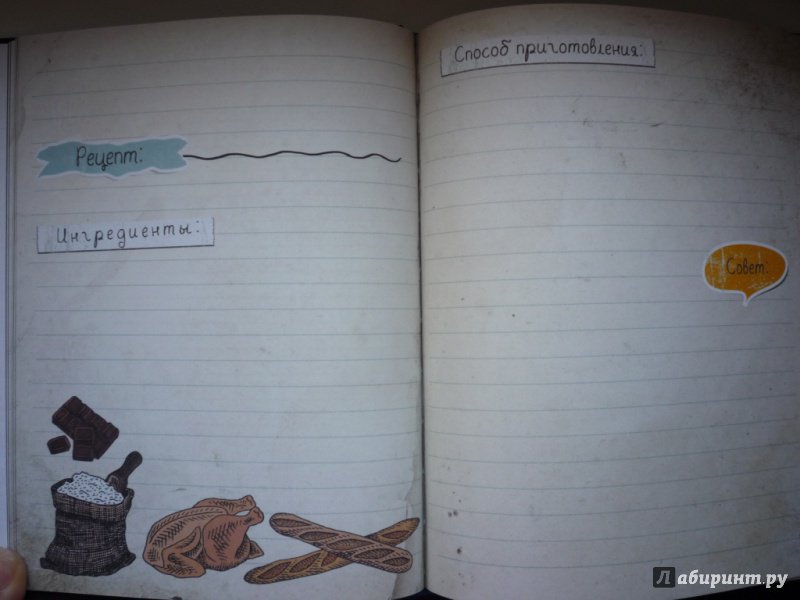 Рецепт:
Ингредиенты:
Способ приготовления:
Совет:
Лабиринт.ру